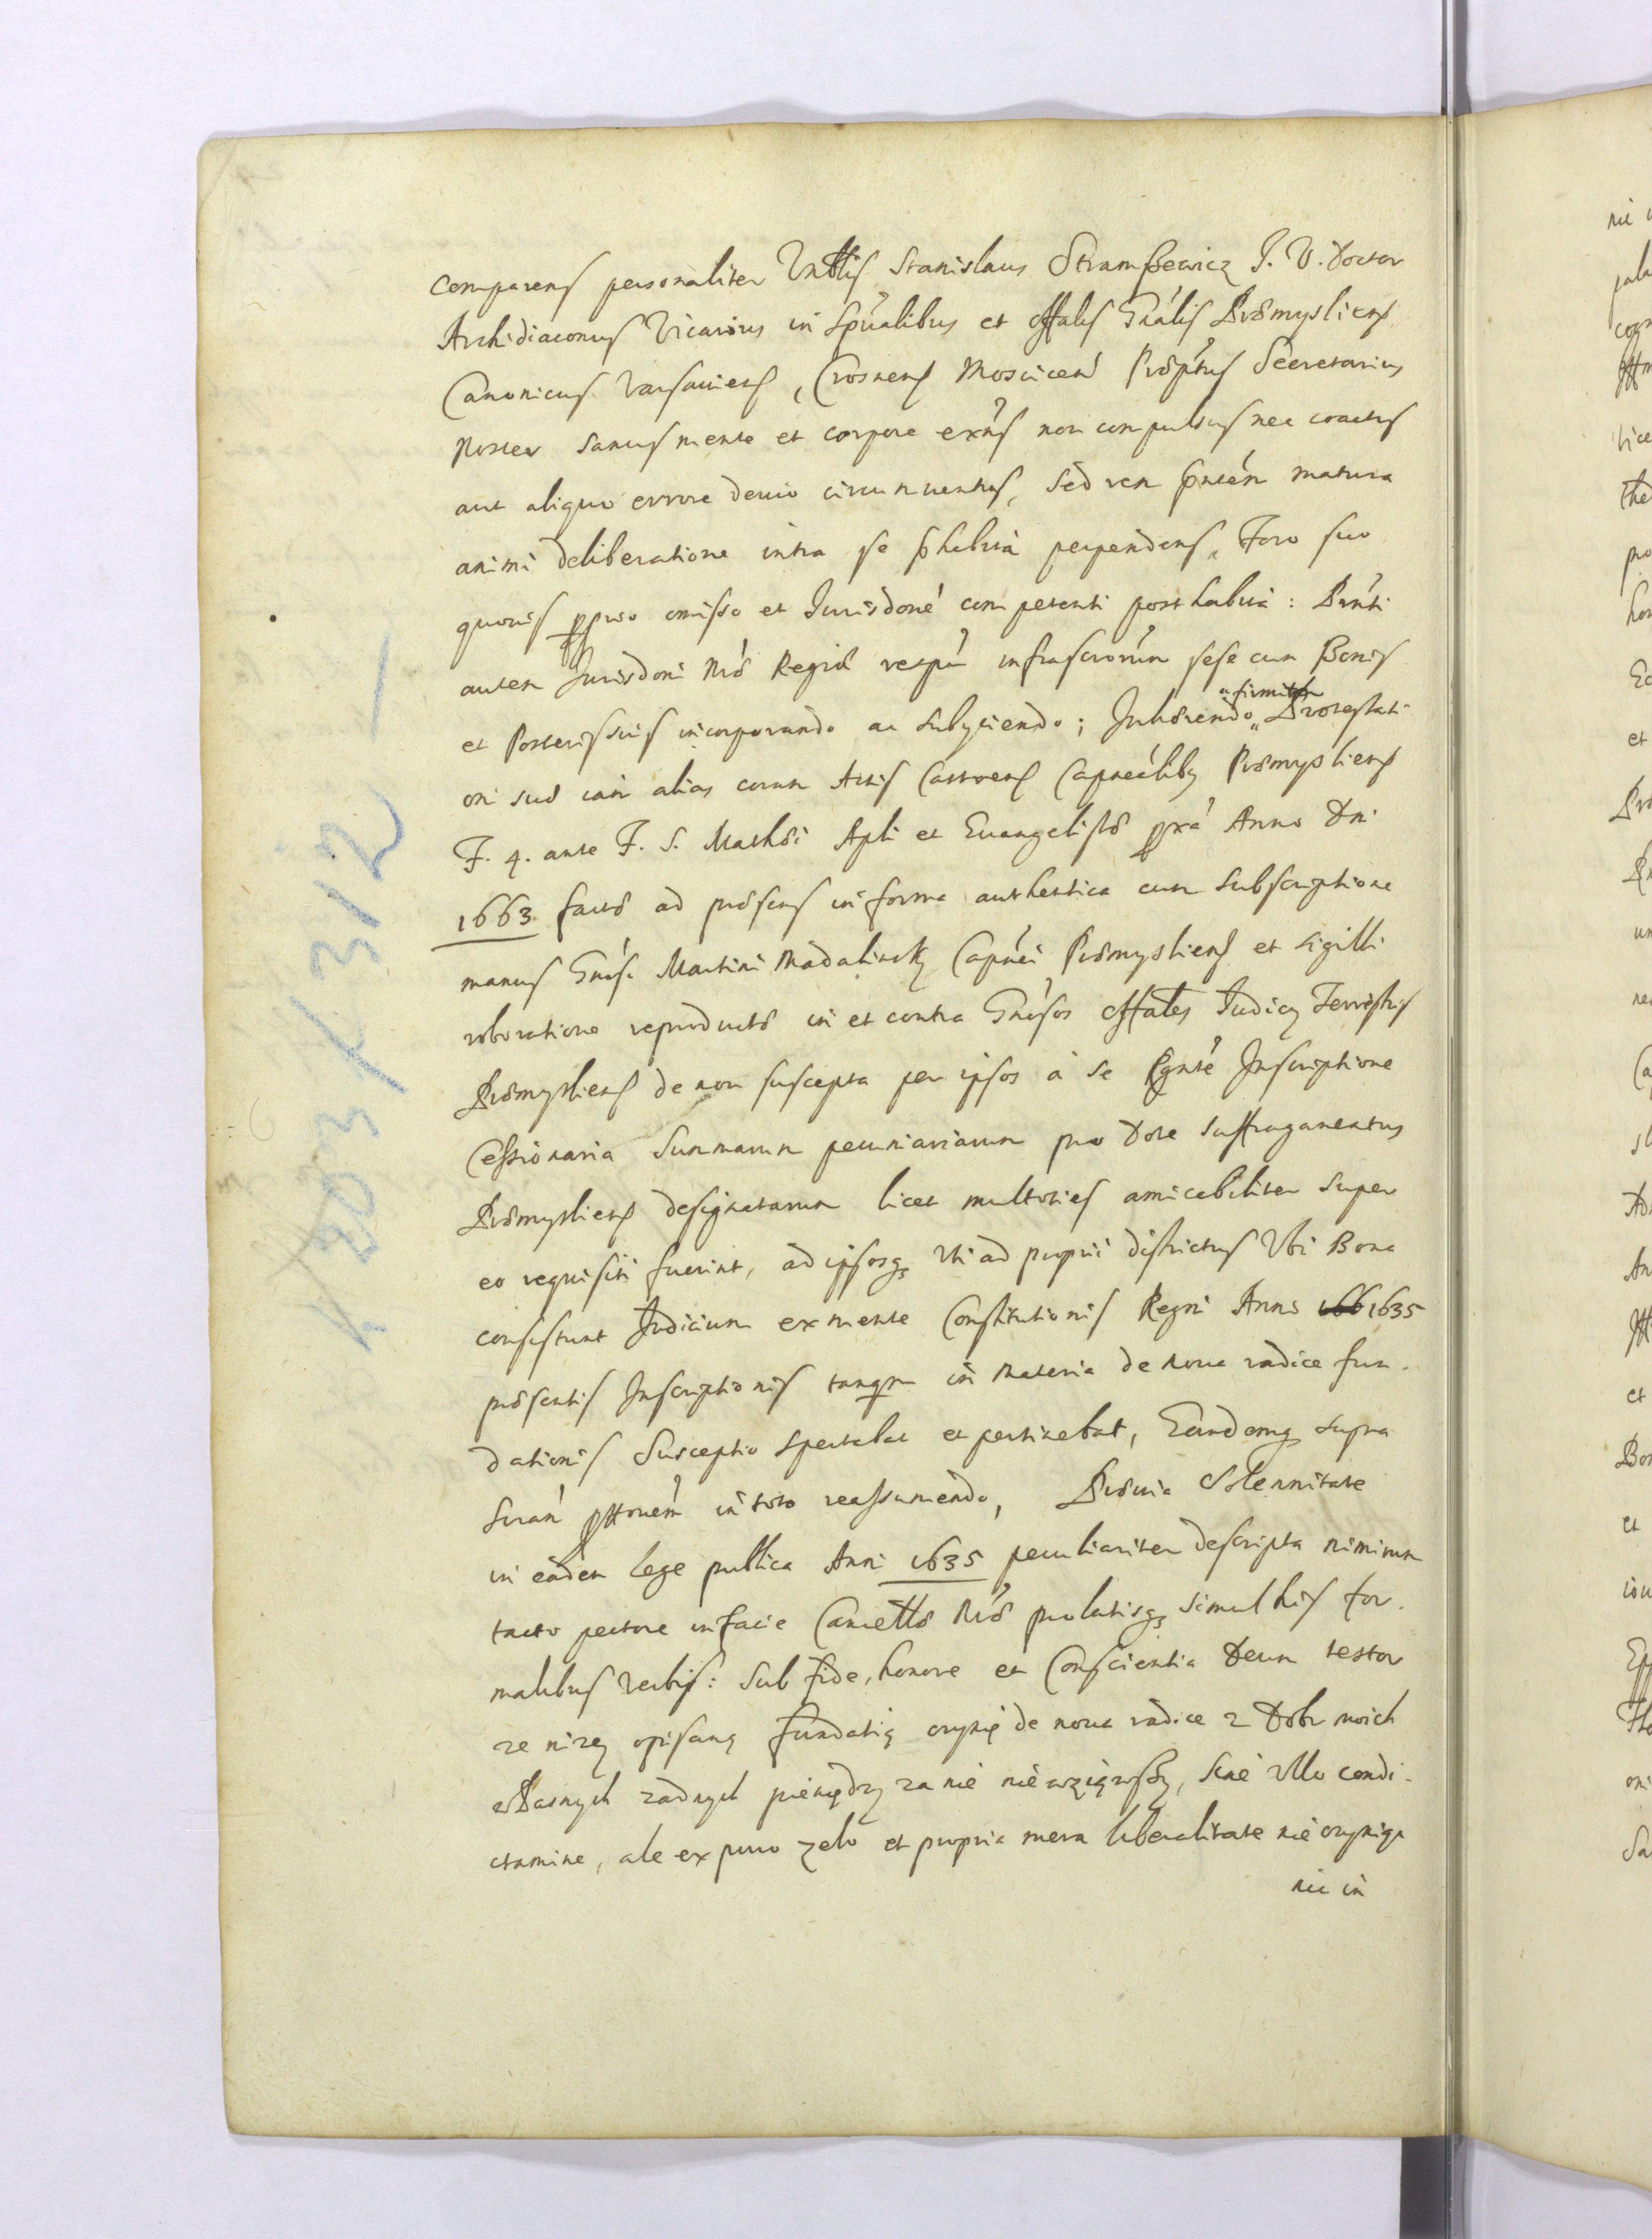 Comparens personaliter Vnblis Stanislaus Stramszewicz J. V. Doctor
Archidiaconus Vicarius in Spũalibus et Offalis Gñalis Præmysliens
Canonicus Varsauiens, Crosnens Moscicen Præptus Secretarius
Noster sanus mente et corpore exñs non compulsus nec coactus
aut aliquo errore deuio circumuentus, sed rem pntém matura
animi deliberatione intra se phabita perpendens, Foro suo
quouis pprio omisso et Jurisdoné competenti posthabita: Prñti
autem Jurisdoni Nræ Regiæ respũ infrascrorum sese cum Bonis
et Posteris suis incorporando ac subyciendo; Inhærendo firmiter Protestati
oni suæ iam alias coram Actis Castrens Capnealibus Præmysliens
F. 4. ante F. S. Mathæi Apli et Euangelistæ pxá Anno Dni
1663 factæ ad præsens in forma authentica cum subscriptione
manus Gnosi Martini Madalinsky Capnéi Præmysliens et sigilli
roboratione reproductæ in et contra Gnósos Offales Judicy Terrestris
Præmysliens de non suscepta per ipsos a se Rgnté Inscriptione
Cessionaria Summarum pecuniariarum pro Dote Suffraganeatus
Præmysliens designatarum licet multoties amicabiliter super
eo requisiti fuerint, ad ipsosq3 vti ad proprii districtus Vbi Bona
consistunt Judicium ex mente Constitutionis Regni Anno 166 1635
præsentis Inscriptionis tanqm in materia de noua radice fun-
dationis Susceptio spectabat et pertinebat, Eandemq3 supra
scram pttonem in toto reassumendo, Præuia Solennitate
in eadem lege publica Anni 1635 peculiariter descripta nimirum
tacto pectore in facie Cancellæ Nræ prolatisq3 simul his for-
malibus verbis: Sub fide, honore et Conscientia Deum testor
ze nizey opisaną fundatią czynię de noua radice z Dobr moich
własnych zadnych pieniędzy za nie niewziąwszy, sine vllo condi-
ctamine, ale ex puro zelo et propria mera liberalitate nie czyniąc
nic in
p. 203/312 –